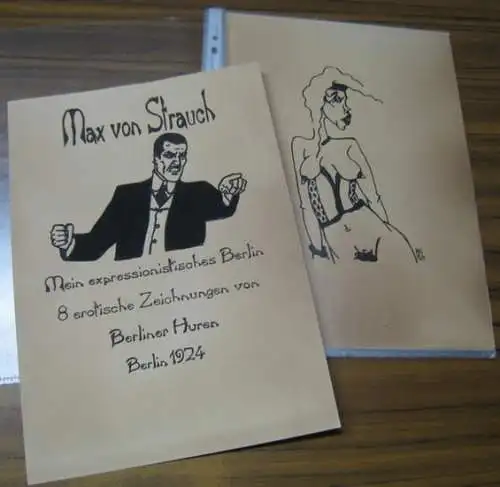 Max von Strauch
Mein expressionistisches Berlin
8 erotische Zeichnungen von
Berliner Huren
Berlin 1924